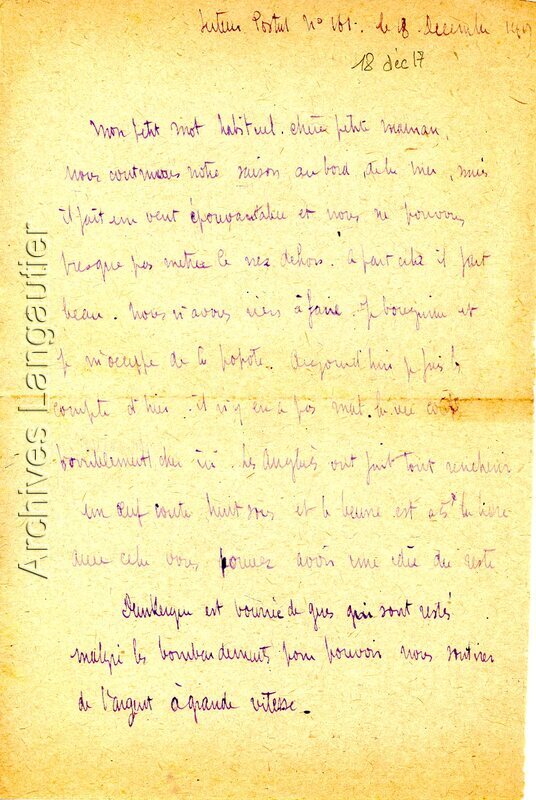 Secteur Postal N° 161. le 18 décembre 1917
18 déc 17
Mon petit mot habituel. chère petite maman,
nous continuons notre saison au bord de la mer, mais
il fait un vent épouvantable et nous ne pouvons
presque pas mettre le nez dehors. à part cela il fait
beau. Nous n'avons rien à faire. Je bouquine et
je m'occupe de la popote. Aujourd'hui je fais le
compte d'hier. il n'y en a pas mal. la vie coûte
horriblement cher ici. les Anglais ont fait tout renchérir
un œuf coute huit sous et le beurre est à 5f la livre
avec cela vous pouvez avoir une idée du reste
Dunkerque est bourrée de gens qui sont restés
malgré les bombardements pour pouvoir nous soutirer
de l'argent à grande vitesse.
Archives Langautier